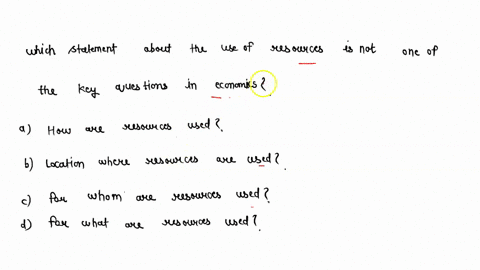 which statement about the use of resources is not one of
the key questions in economics?
a) How are resources used?
b) Location where resources are used?
c) for whom are resources used?
d) for what are resources used?